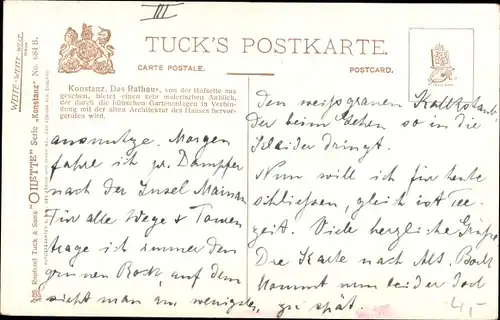 III
TUCK'S POSTKARTE.
CARTE POSTALE.
POSTCARD.
Konstanz. Das Rathaus, von der Hofseite aus
gesehen, bietet einen sehr malerischen Anblick,
der durch die hübschen Gartenanlagen in Verbin-
dung mit der alten Architektur des Hauses hervor-
gerufen wird.
WEITE-WEITE-WELT
Raphael Tuck & Sons' "OILETTE" Serie „Konstanz" No. 684 B.
ausnutze. Morgen
fahre ich pr. Dampfer
nach der Insel Mainau
Für alle Wege & Touren
trage ich immer den
grünen Rock, auf dem
sieht man am wenigsten
den weissgrauen Kalkstaub,
der beim Gehen so in die
Kleider dringt.
Nun will ich für heute
schließen, gleich ist Tee-
zeit. Viele herzliche Grüße
Die Karte nach Alt.
kommt nun bei der
zu spät.
4,-